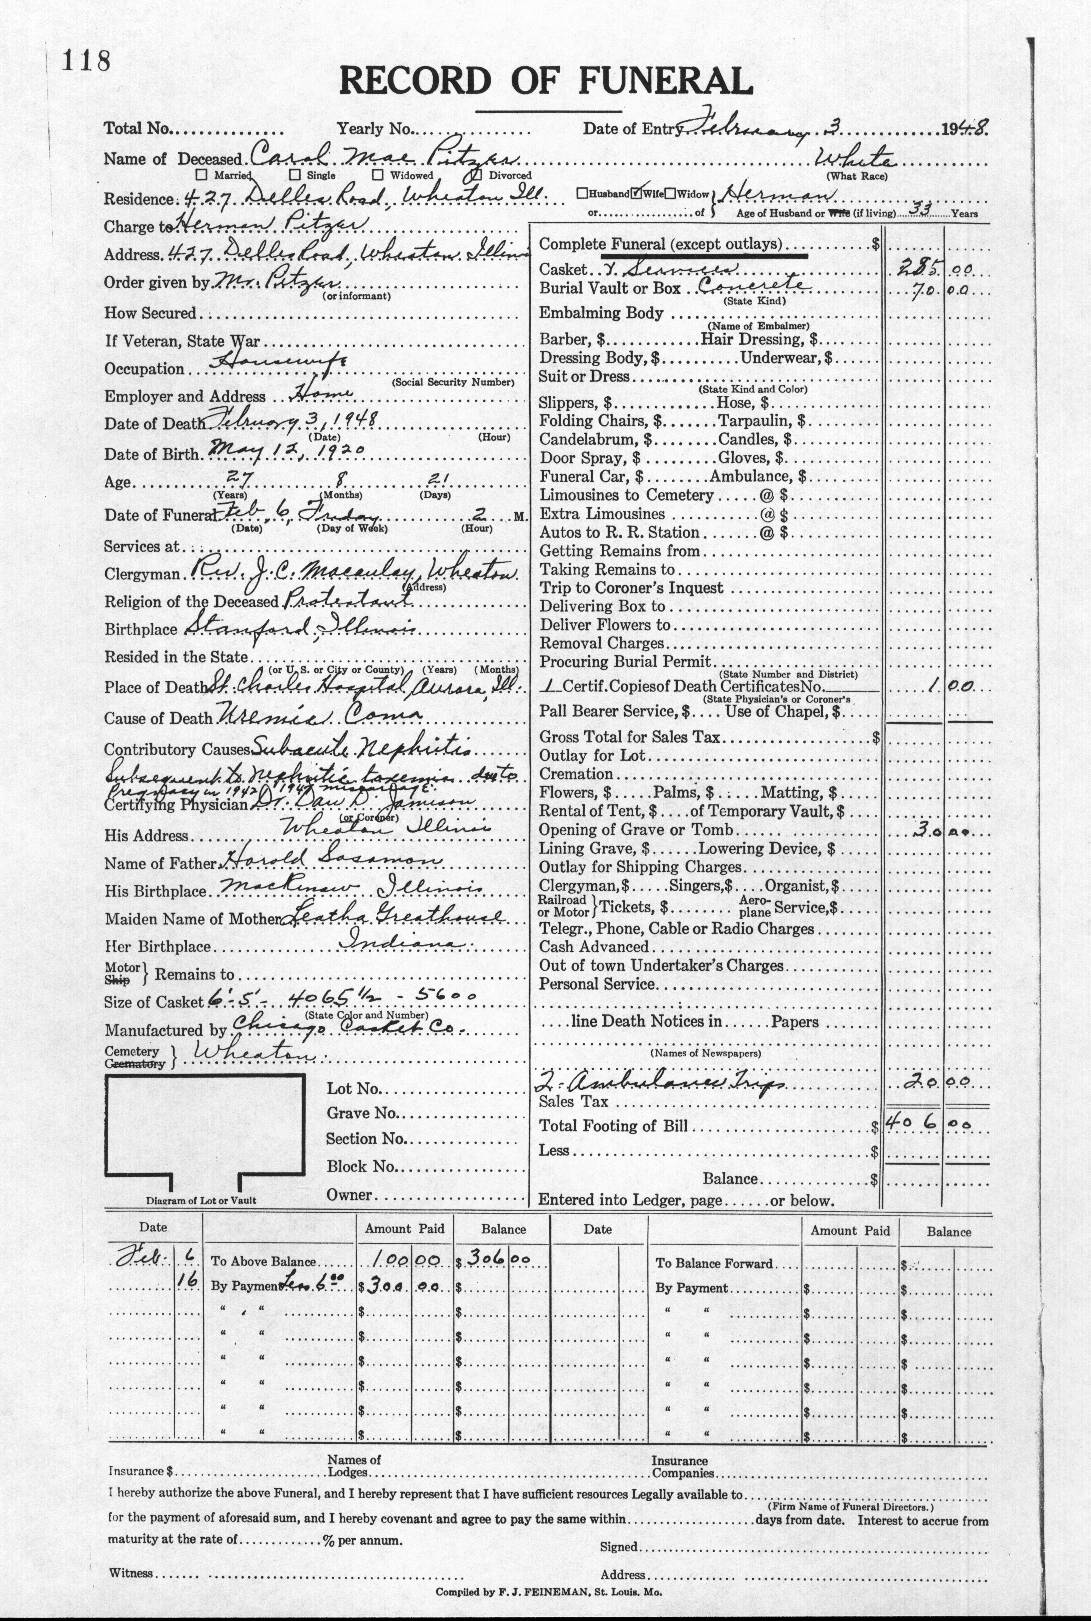 118
RECORD OF FUNERAL
Total No. Yearly No. Date of Entry February 3 1948.
Name of Deceased Carol Mae Pitzer White
Married Single Widowed Divorced (What Race)
Residence 427 Delles Road, Wheaton Ill. Husband Wife Widow } Herman
or of } Age of Husband or Wife (if living) 33 Years
Charge to Herman Pitzer
Address. 427 Delles Road, Wheaton Illinois
Order given by Mr. Pitzer
(or informant)
How Secured
If Veteran, State War
Occupation Housewife
(Social Security Number)
Employer and Address Home
Date of Death February 3, 1948
(Date) (Hour)
Date of Birth May 12, 1920
Age 27 8 21
(Years) (Months) (Days)
Date of Funeral Feb. 6, Friday 2 M.
(Date) (Day of Week) (Hour)
Services at
Clergyman Rev. J. C. Macaulay, Wheaton
(Address)
Religion of the Deceased Protestant
Birthplace Stanford, Illinois
Resided in the State
(or U. S. or City or County) (Years) (Months)
Place of Death St. Charles Hospital, Aurora, Ill.
Cause of Death Uremic Coma
Contributory Causes Subacute Nephritis
Subsequent to nephritic toxemia due to
Pregnancy in 1942, 1947 miscarriage.
Certifying Physician Dr. Dan D. Jamison
(or Coroner)
His Address Wheaton Illinois
Name of Father Harold Sasamon
His Birthplace Mackinaw, Illinois
Maiden Name of Mother Leatha Greathouse
Her Birthplace Indiana
Motor
Ship } Remains to
Size of Casket 6'-5'- 4065 1/2 - 5600
(State Color and Number)
Manufactured by Chicago Casket Co.
Cemetery
Crematory } Wheaton
Diagram of Lot or Vault
Lot No.
Grave No.
Section No.
Block No.
Owner
Complete Funeral (except outlays) $
Casket & Services 285 00
Burial Vault or Box Concrete 70 00
(State Kind)
Embalming Body
(Name of Embalmer)
Barber, $ Hair Dressing, $
Dressing Body, $ Underwear, $
Suit or Dress
(State Kind and Color)
Slippers, $ Hose, $
Folding Chairs, $ Tarpaulin, $
Candelabrum, $ Candles, $
Door Spray, $ Gloves, $
Funeral Car, $ Ambulance, $
Limousines to Cemetery @ $
Extra Limousines @ $
Autos to R. R. Station @ $
Getting Remains from
Taking Remains to
Trip to Coroner's Inquest
Delivering Box to
Deliver Flowers to
Removal Charges
Procuring Burial Permit
(State Number and District)
1 Certif. Copies of Death Certificates No. 1 00
(State Physician's or Coroner's
Pall Bearer Service, $ Use of Chapel, $
Gross Total for Sales Tax $
Outlay for Lot
Cremation
Flowers, $ Palms, $ Matting, $
Rental of Tent, $ of Temporary Vault, $
Opening of Grave or Tomb 30 00
Lining Grave, $ Lowering Device, $
Outlay for Shipping Charges
Clergyman, $ Singers, $ Organist, $
Railroad
or Motor } Tickets, $ Aero-
plane Service, $
Telegr., Phone, Cable or Radio Charges
Cash Advanced
Out of town Undertaker's Charges
Personal Service
line Death Notices in Papers
(Names of Newspapers)
2 Ambulance Trips 20 00
Sales Tax
Total Footing of Bill $ 406 00
Less $
Balance $
Entered into Ledger, page or below.
Date Amount Paid Balance Date Amount Paid Balance
Feb. 6 To Above Balance 100 00 $ 306 00 To Balance Forward $
16 By Payment Less 6 00 $ 300 00 $ By Payment $ $
" " $ $ " " $ $
" " $ $ " " $ $
" " $ $ " " $ $
" " $ $ " " $ $
" " $ $ " " $ $
" " $ $ " " $ $
Insurance $ Names of Lodges Insurance Companies
I hereby authorize the above Funeral, and I hereby represent that I have sufficient resources Legally available to
(Firm Name of Funeral Directors.)
for the payment of aforesaid sum, and I hereby covenant and agree to pay the same within days from date. Interest to accrue from
maturity at the rate of % per annum.
Signed
Witness Address
Compiled by F. J. FEINEMAN, St. Louis. Mo.